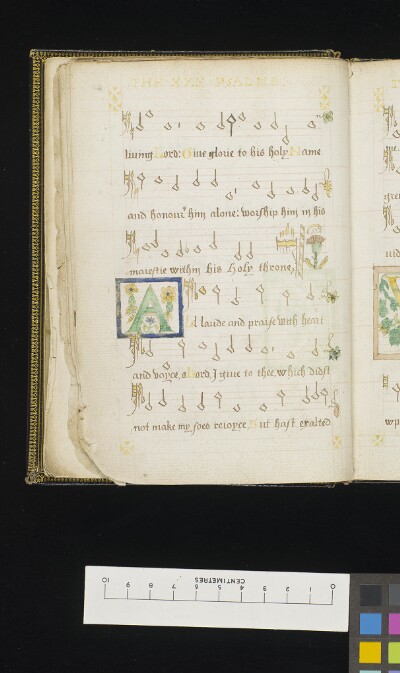 THE XXX PSALME
living Lord: Giue glorie to his holy Name
and honour him alone: worship him in his
maiestie within his Holy throne,
All laude and praise with heart
and voyce, o Lord, I giue to thee, which didst
not make my foes reioyce, But hast exalted
CENTIMETRES
10 9 8 7 6 5 4 3 2 1 0